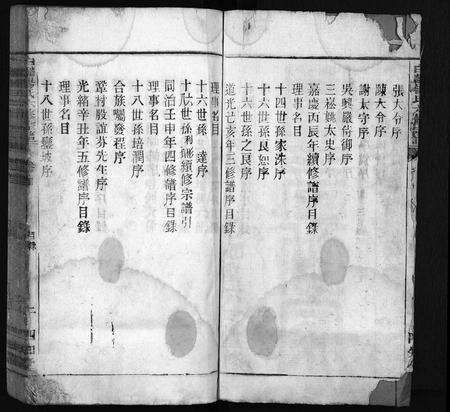 張大令序
陳大令序
謝太守序
吳興嚴侍御序
三崧姚太史序
嘉慶丙辰年續修譜序目錄
理事名目
十四世孫家洙序
十六世孫良恕序
十六世孫之良序
道光乙亥年三修譜序目錄
理事名目
十六世孫 達序
十六世孫 續修宗譜引
同治壬申年四修譜序目錄
理事名目
十八世孫培潤序
合族 發程序
穀誼芬先年序
光緒辛丑年五修譜序目錄
理事名目
十八世孫 坡序